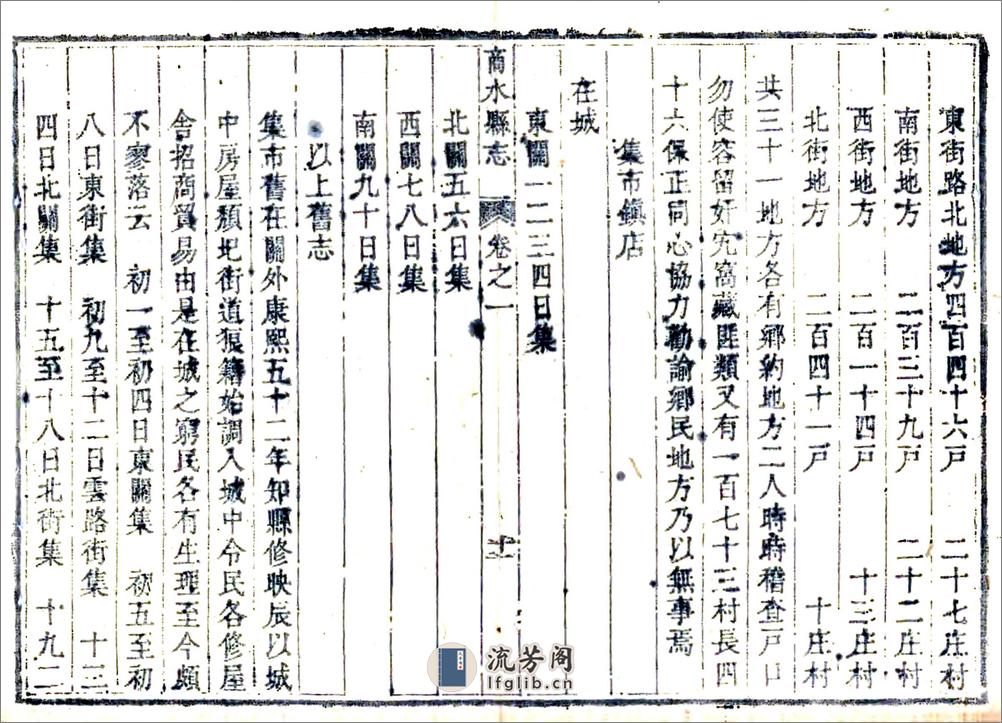 東街路北地方四百四十六戸 二十七庄村
南街地方 二百三十九戸 二十二庄村
西街地方 二百一十四戸 十三庄村
北街地方 二百四十一戸 十庄村
共三十一地方各有鄉約地方二人時時稽查戸口
勿使容留奸宄窩藏匪類又有一百七十三村長四
十六保正同心協力勸諭鄉民地方乃以無事焉
集市鎮店
在城
東關一二三四日集
商水縣志 卷之一 十一
北關五六日集
西關七八日集
南關九十日集
以上舊志
集市舊在關外康熙五十二年知縣修映辰以城
中房屋頹圮街道狼籍始調入城中令民各修屋
舍招商貿易由是在城之窮民各有生理至今頗
不寥落云 初一至初四日東關集 初五至初
八日東街集 初九至十二日雲路街集 十三
四日北關集 十五至十八日北街集 十九二
流芳阁
lfglib.cn